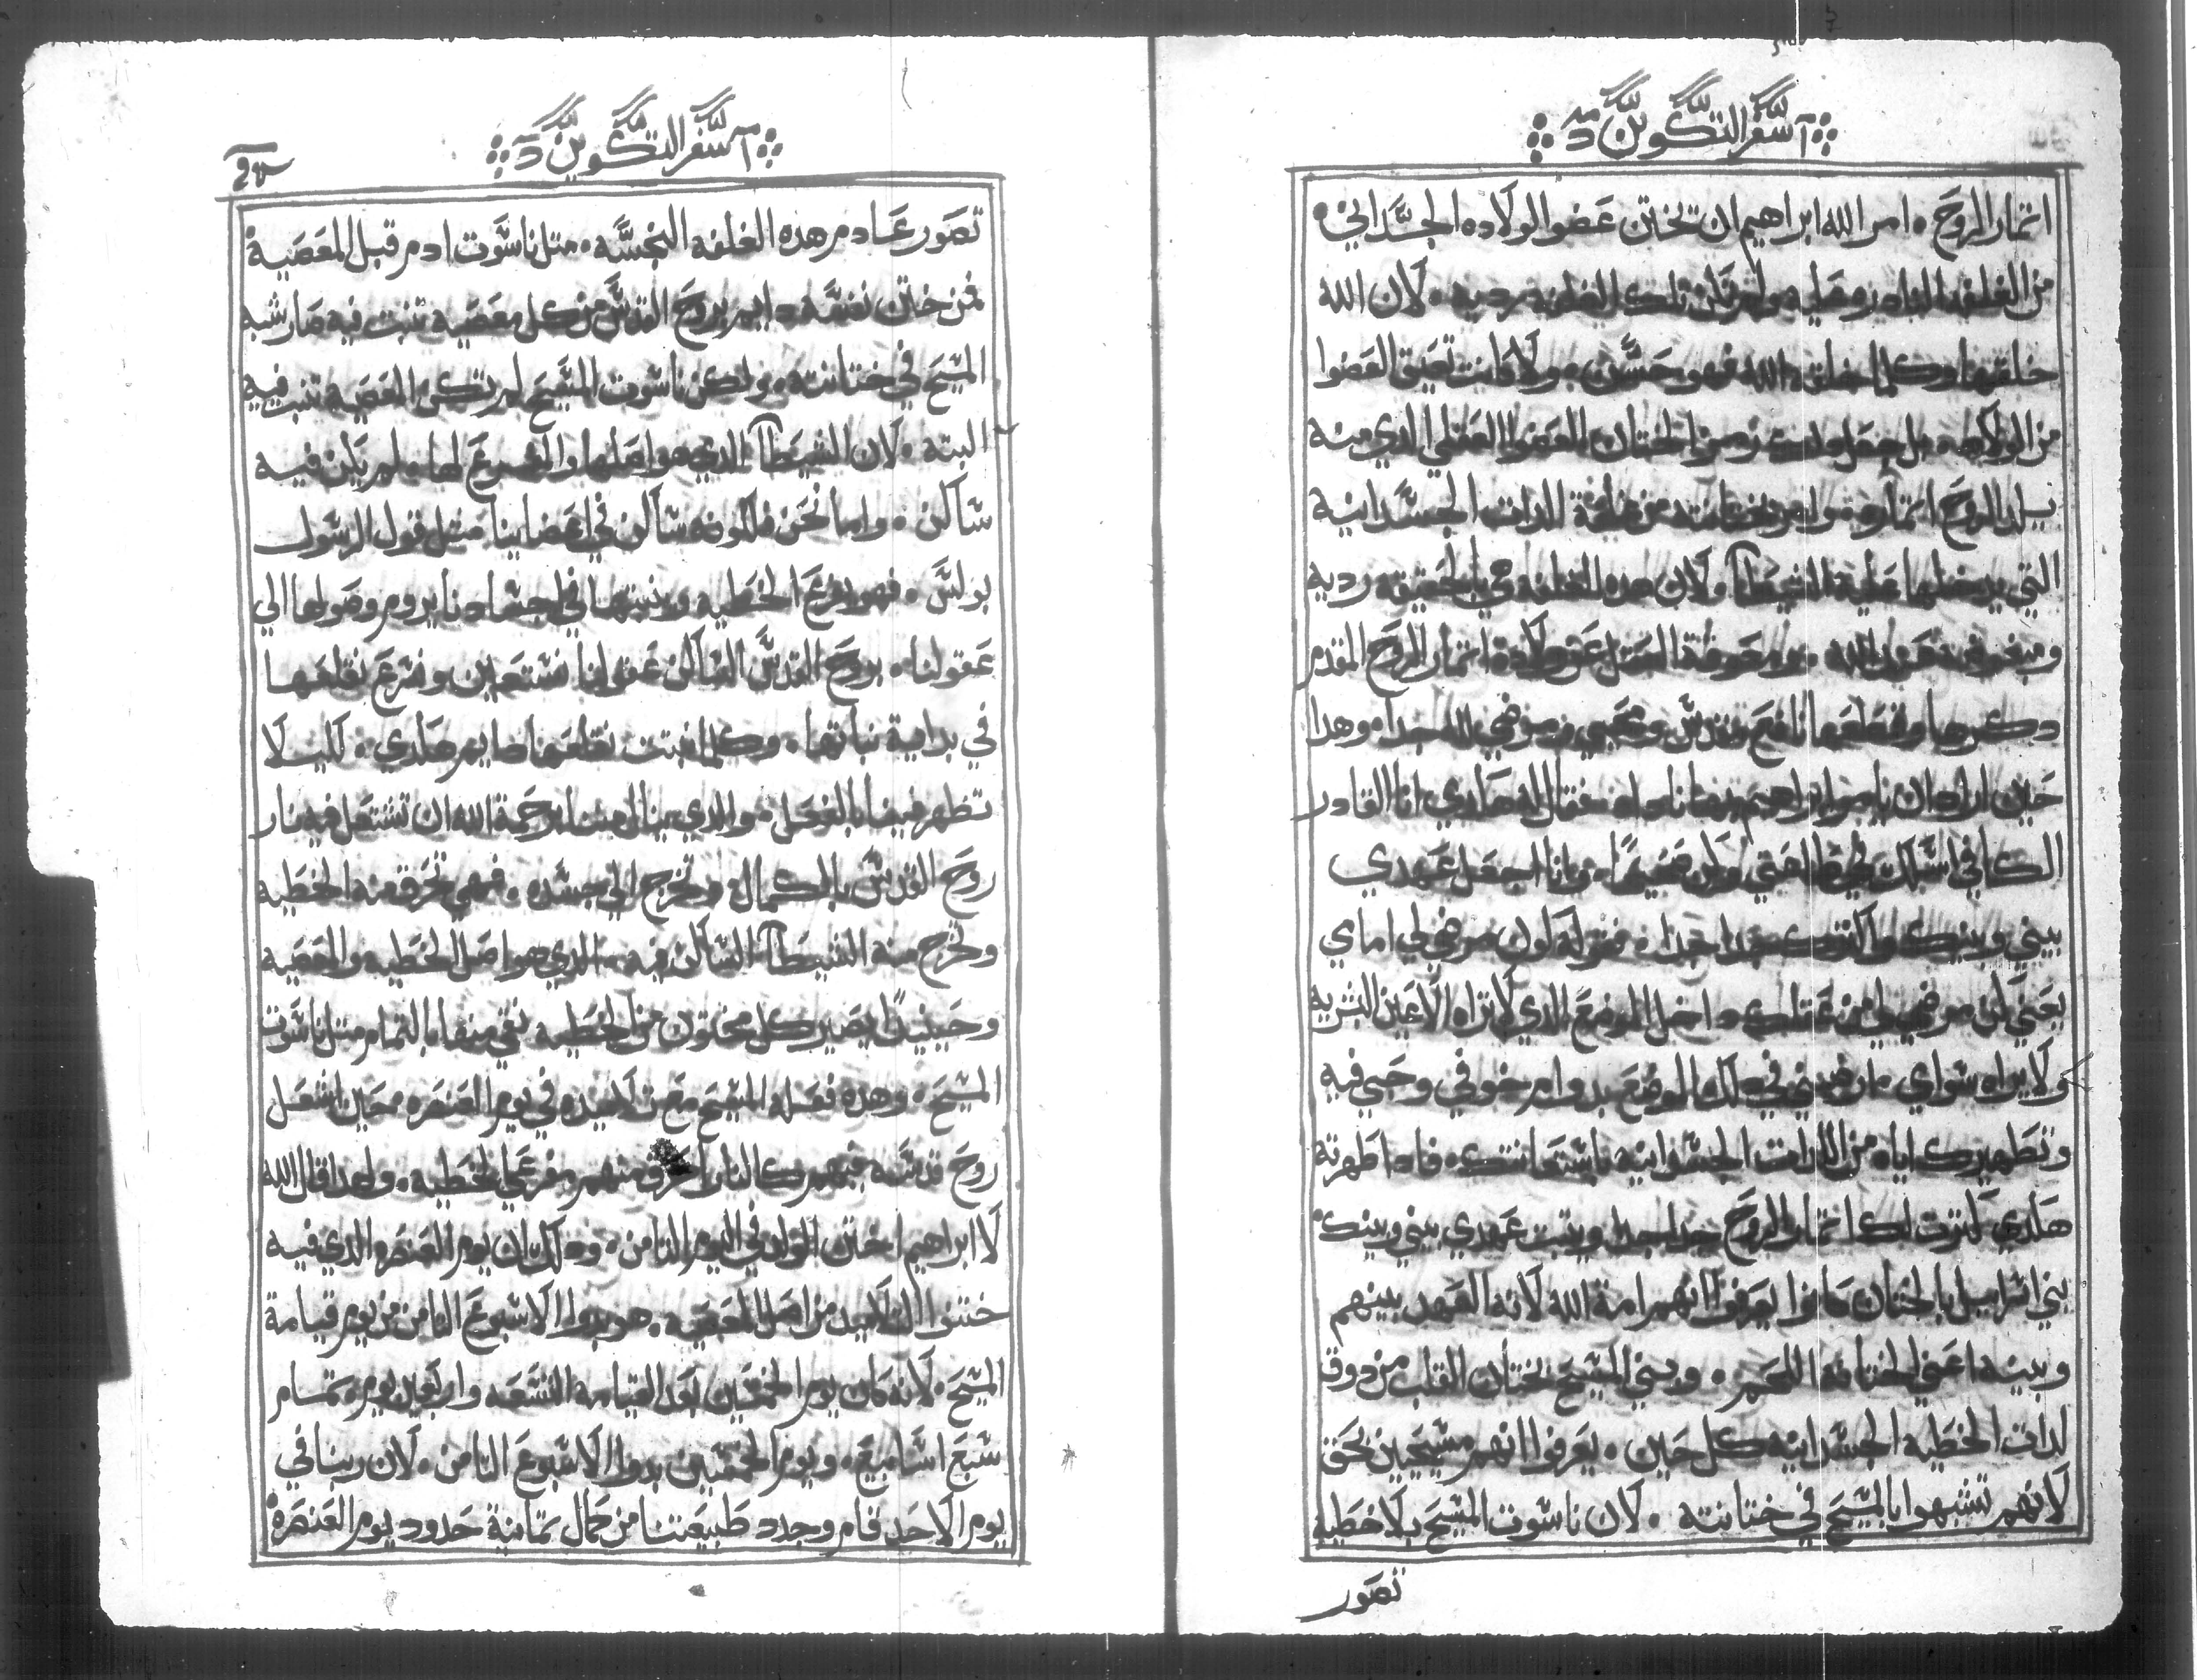 سفر التكوين
اتمار الروح ٠ امر الله ابراهيم ان تختن عضو الولاده الجسداني
من الغلفه البادره عليه ولم تكن تلك الغلفه رديه ٠ لان الله
خلقها وكلما خلقه الله فهو حسن ٠ ولا كانت تعيق العضوا
من الولاده ٠ بل جعل دلك رمز الختان العضوا العقلي الدي منه
يلد الروح اتماره وامر بختانته من غلفة اللدات الجسدانيه
التي يدخلها عليه الشيطان ٠ لان هده الغلفه هي بالحقيقه رديه
دكرها وقطعها نافع مقدس ومحبي مرضي لله جدا ٠ وهدا
حين اراد ان يامر ابراهيم بهدا فقال له هاري انا القادر
الكافي اسلك في طاعتي وكن صحيحا ٠ وانا اجعل عهدي
بيني وبينك واكترك جدا جدا ٠ فقوله كون مرضي لي امامي
يعني كن مرضي لي من عقلك داخل الموضع الدي لا تراه الاعين البشريه
ولا يراه سواي ٠ ارضيني في دلك الموضع بدوام خوفي وحبي فيه
وتطهيرك اياه من اللدات الجسدانيه باستعانتك ٠ فادا طهرته
هكدي كترت لك اتمار الروح جدا جدا ويتبت عهدي بيني وبينك
بني اسراييل بالختان كانوا يعرفوا انهم امة الله لانه العهد بينهم
وبينه اعني ختانة اللحم ٠ وبني المسيح بختان القلب من دوق
لدات الخطيه الجسدانيه كل حين ٠ يعرفوا انهم مسيحيين بحق
لانهم تشبهوا بالمسيح في ختانته ٠ لان ناسوت المسيح بلا خطيه
تصور
سفر التكوين
تصور عادم هده الغلفه النجسه ٠ متل ناسوت ادم قبل المعصية
فمن ختن نفسه دايم بروح القدس من كل معصيه تنبت فيه صار شبه
المسيح في ختانته ٠ ولكن ناسوت المسيح لم تكن المعصيه تنبت فيه
البته ٠ لان الشيطان الدي هو اصلها والمفرع لها ٠ لم يكن فيه
ساكن ٠ واما نحن فلكونه ساكن في اعضاينا متل قول الرسول
بولس ٠ فهو يفرع الخطيه وينبتها في اجسادنا يروم وصولها الي
عقولنا ٠ بروح القدس الساكن عقولنا نستعين ونسرع نقلعها
في بداية نباتها ٠ وكلما نبتت نقلعها دايم هكدي ٠ كليلا
تظهر فينا بالفعل ٠ والدي ينال منا برحمة الله ان تشتعل فيه نار
روح القدس بالكمال وتخرج الي جسده ٠ فهي تحرق منه الخطيه
وتخرج منه الشيطان الساكن فيه ٠ الدي هو اصل الخطيه والمعصيه
وحينيدا يصير كل مختون من الخطيه نقي منها بالتمام متل ناسوت
المسيح ٠ وهده فعله المسيح مع تلاميده في يوم العنصره ٠ حين اشعل
روح قدسه فيهم كالنار احرق منهم مفرعي الخطيه ٠ ولهدا قال الله
لا ابراهيم اختن المولود في اليوم التامن ٠ ودلك ان يوم العنصره الدي فيه
ختنوا التلاميد من اصل المعصيه ٠ هو بدوا الاسبوع التامن من يوم قيامة
المسيح ٠ لانه كان يوم الخمسين بعد القيامه التسعه واربعين يوم ٠ تمام
سبع اسابيع ٠ ويوم الخمسين بدوا الاسبوع التامن ٠ لان ربنا في
يوم الاحد قام وجدد طبيعتنا من كمال تمانية حدود يوم العنصرة